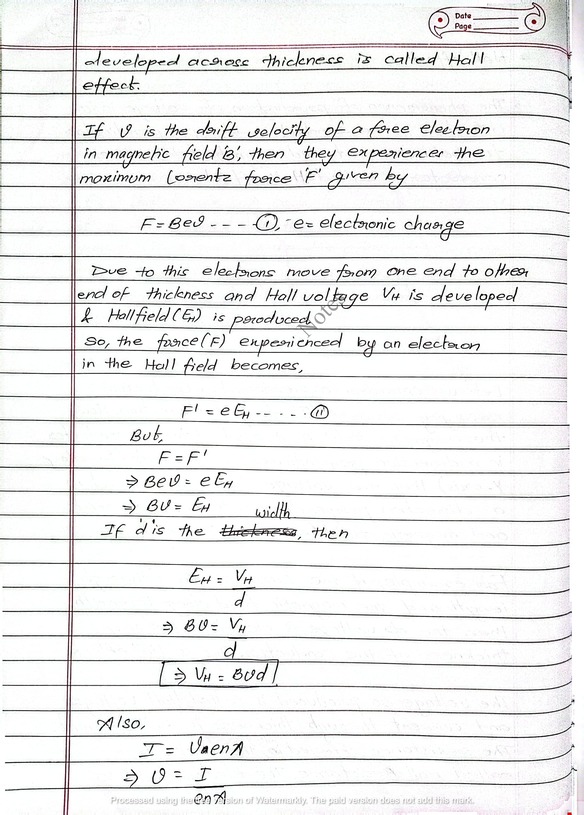 Date
Page
developed across thickness is called Hall
effect.
If v is the drift velocity of a free electron
in magnetic field 'B', then they experiences the
maximum Lorentz force 'F' given by
F = Bev ---- ①, e = electronic charge
Due to this electrons move from one end to other
end of thickness and Hall voltage VH is developed
& Hall field (EH) is produced
So, the force (F) experienced by an electron
in the Hall field becomes,
F' = e EH ------ ⑪
But,
F = F'
⇒ Bev = e EH
⇒ Bv = EH
width
If 'd' is the thickness, then
EH = VH
d
⇒ Bv = VH
d
⇒ VH = Bvd
Also,
I = venA
⇒ v = I
enA
Notes
Processed using the free version of Watermarkly. The paid version does not add this mark.